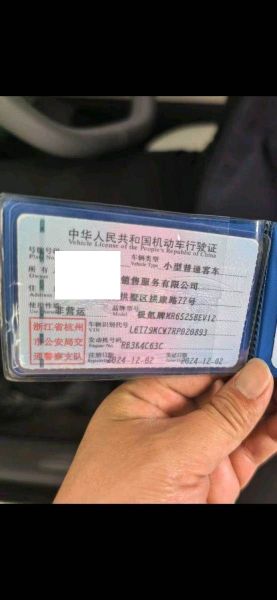 中华人民共和国机动车行驶证
Vehicle License of the People's Republic of China
号牌号码
车辆类型
Vehicle Type
小型普通客车
所有
Owner
销售服务有限公司
住
Address
拱墅区拱康路77号
非营运
品牌型号
Model
极氪牌MR6525BEV12
浙江省杭州
市公安局交
通警察支队
车辆识别代号
VIN
L6TZ9MCW7RP020893
发动机号码
RB3K4C63C
注册日期
2024-12-02
发证日期
2024-12-02